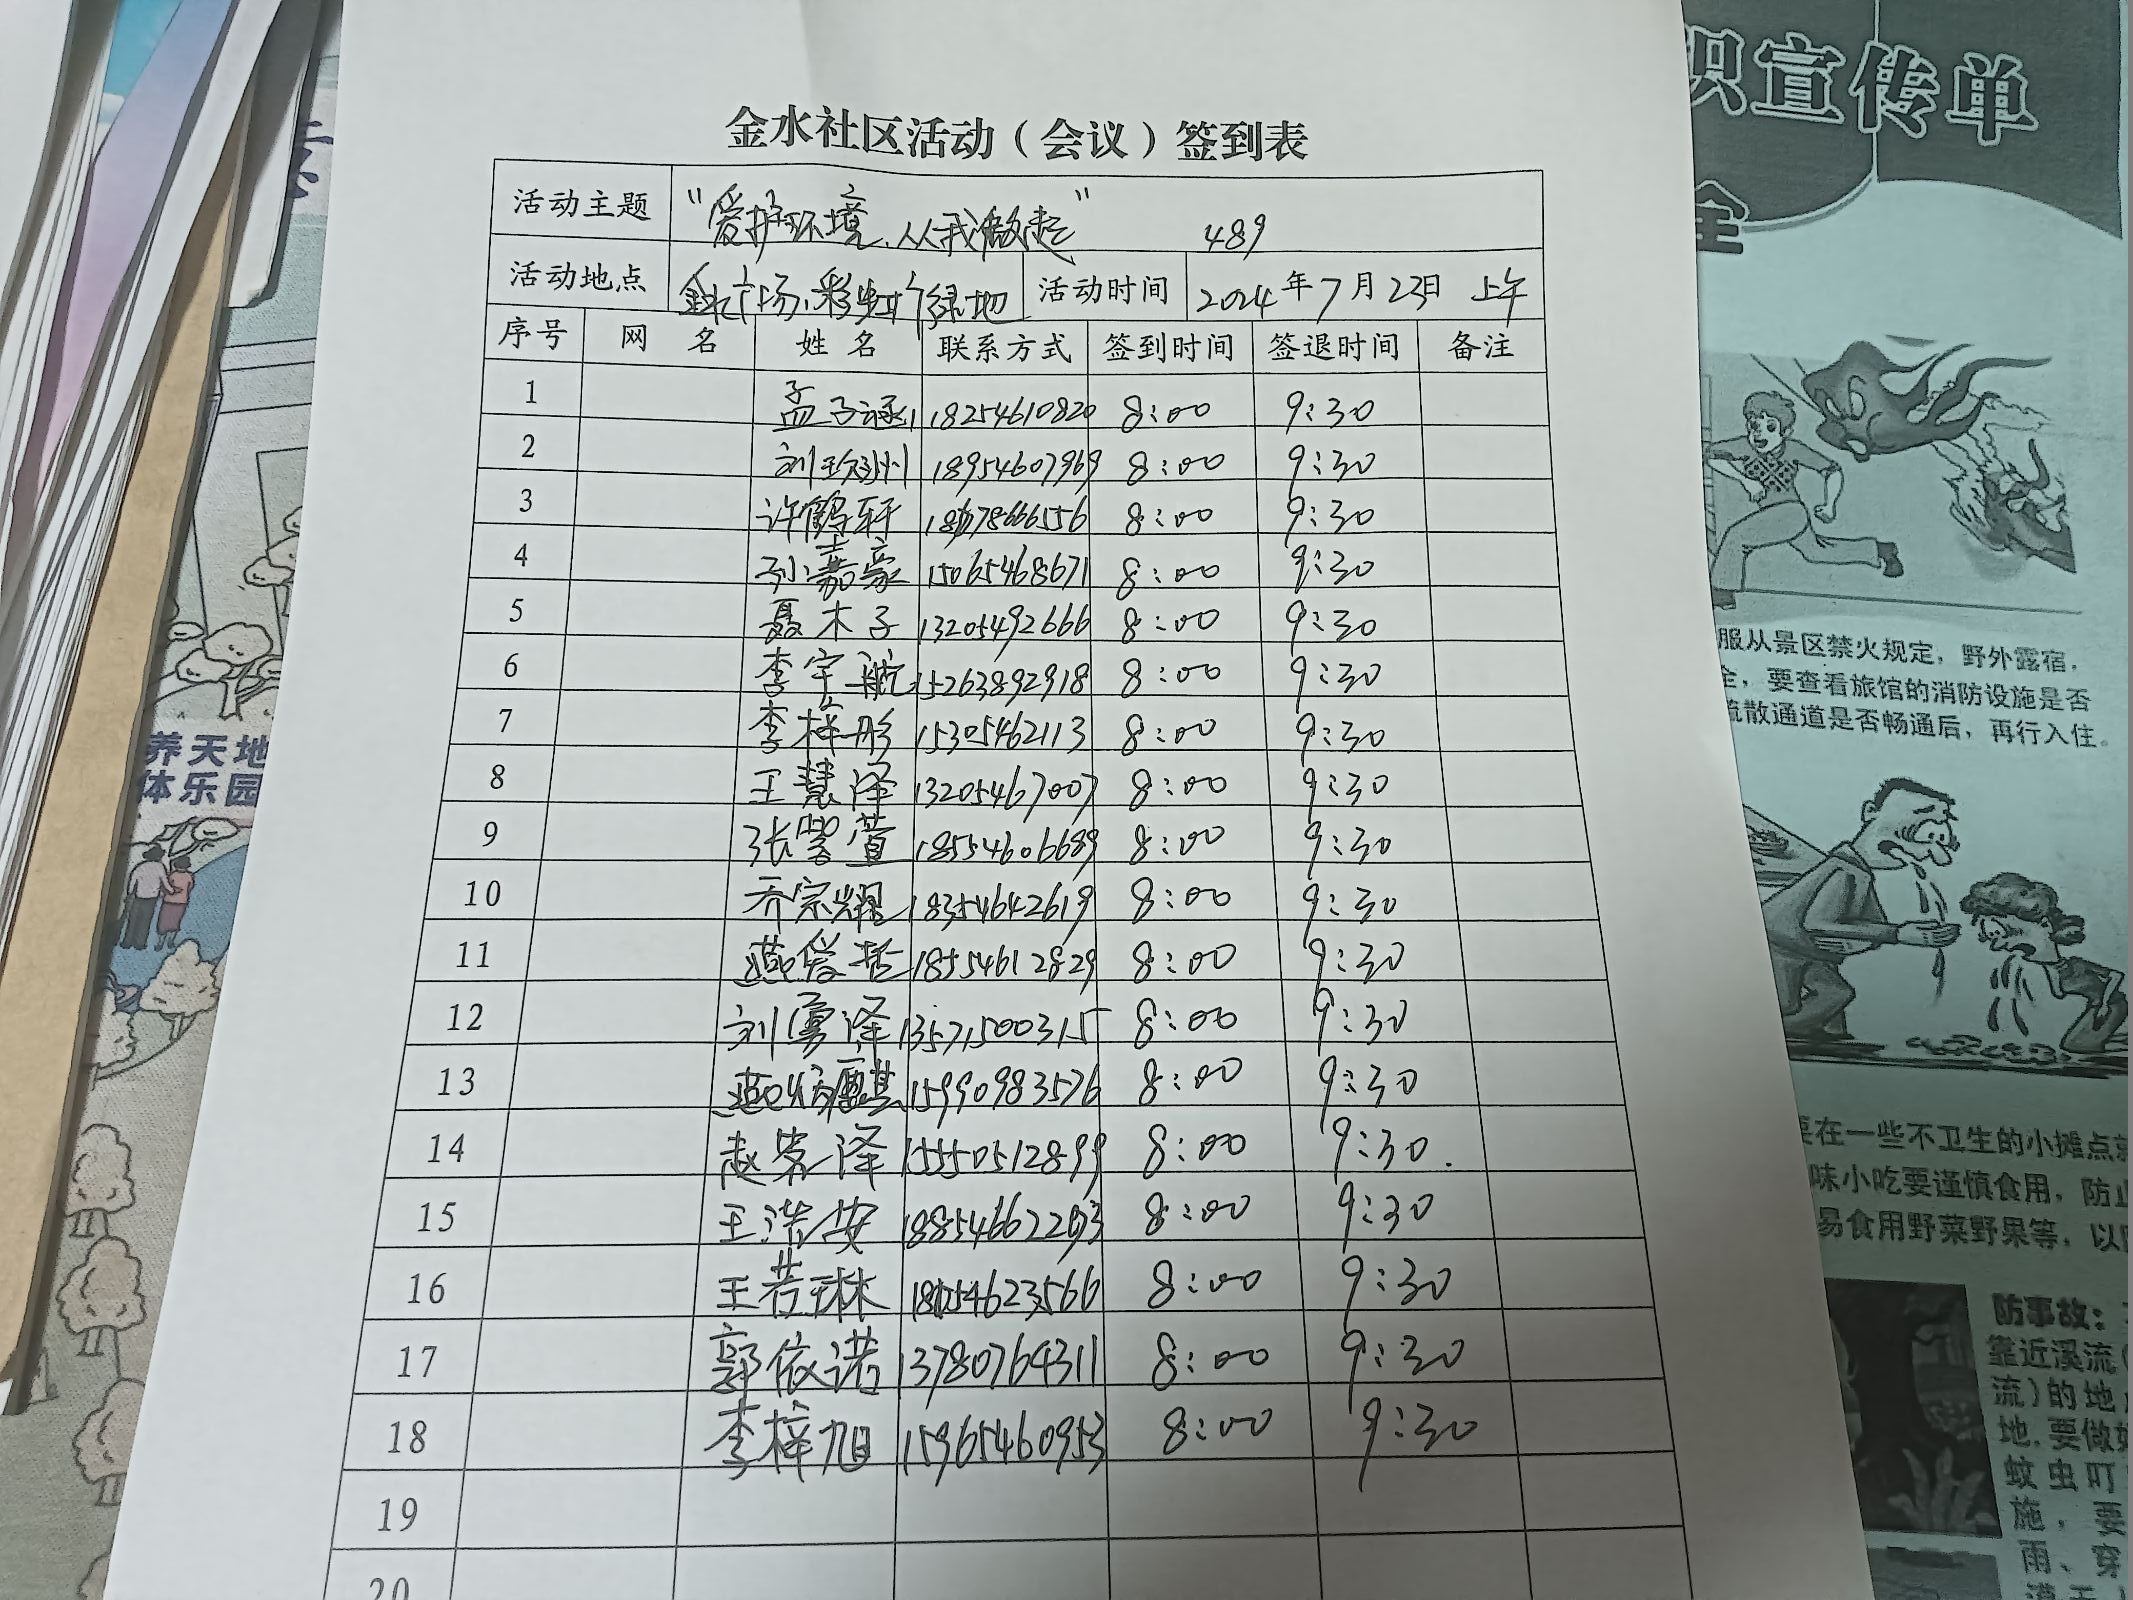 金水社区活动（会议）签到表
活动主题 “爱护环境、从我做起” 489
活动地点 金水广场、彩虹广绿地 活动时间 2024年7月23日 上午
序号 网 名 姓 名 联系方式 签到时间 签退时间 备注
1 孟子涵 18254610820 8:00 9:30
2 刘 18954607969 8:00 9:30
3 许鹤轩 8:00 9:30
4 孙嘉豪 15065468671 8:00 9:30
5 聂木子 13205492666 8:00 9:30
6 李宇航 15263892918 8:00 9:30
7 李梓彤 15305462113 8:00 9:30
8 王慧泽 13205467007 8:00 9:30
9 张馨萱 18554606689 8:00 9:30
10 乔宗耀 18354642619 8:00 9:30
11 燕爱哲 18554612829 8:00 9:30
12 刘勇泽 13571500315 8:00 9:30
13 燕 麒 15990983576 8:00 9:30
14 赵紫泽 15550512899 8:00 9:30.
15 王浩安 8:00 9:30
16 王若琳 8:00 9:30
17 郭依诺 13780764311 8:00 9:30
18 李梓旭 15965460953 8:00 9:30
19
20
识宣传单
全
服从景区禁火规定，野外露宿，
全，要查看旅馆的消防设施是否
疏散通道是否畅通后，再行入住。
要在一些不卫生的小摊点就
味小吃要谨慎食用，防止
易食用野菜野果等，以
防事故：
靠近溪流
流）的地
地，要做好
蚊虫叮
施，要
雨、穿
养天地
体乐园